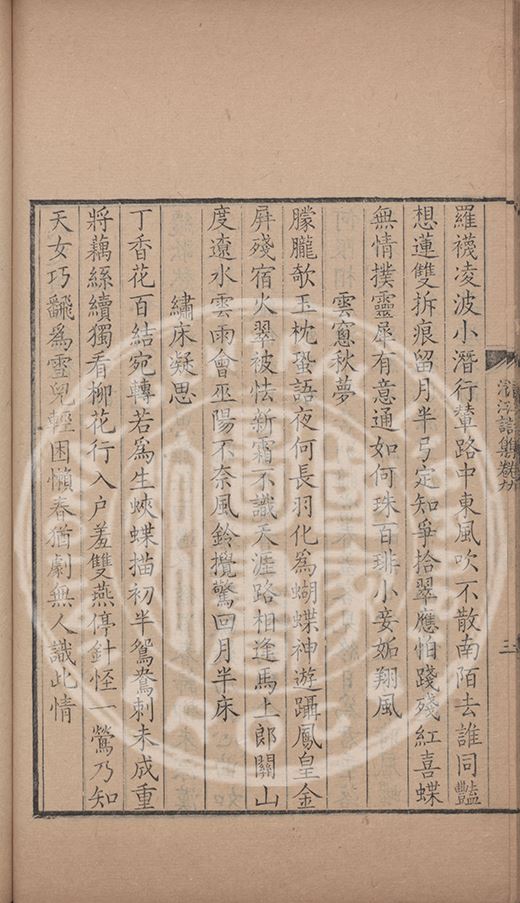 羅襪凌波小潛行輦路中東風吹不散南陌去誰同豔
想蓮雙拆痕留月半弓定知爭拾翠應怕踐殘紅喜蝶
無情撲靈犀有意通如何珠百琲小妾妬翔風
雲窗秋夢
朦朧欹玉枕蛩語夜何長羽化爲蝴蝶神遊躡鳳皇金
屏殘宿火翠被怯新霜不識天涯路相逢馬上郎關山
度遠水雲雨會巫陽不奈風鈴攪驚回月半床
繡床凝思
丁香花百結宛轉若爲生蛺蝶描初半鴛鴦刺未成重
將藕絲續獨看柳花行入户羞雙燕停針怪一鶯乃知
天女巧翻爲雪兒輕困懶春猶劇無人識此情
詩集卷九
三